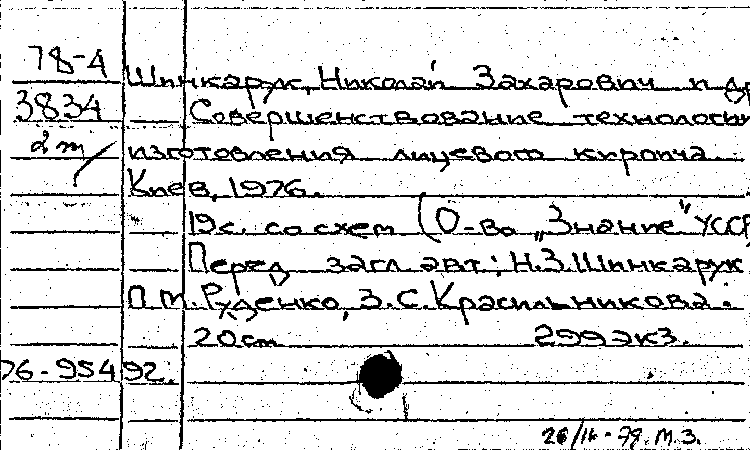 78-4 Шинкарук, Николай Захарович и др
3834 Совершенствование технологии
2т/ изготовления лицевого кирпича.
Киев, 1976.
19с. со схем (О-во „Знание" УССР
Перед загл. авт.: Н.З.Шинкарук
П.М.Руденко, З.С.Красильникова.
20см 299экз.
76-95492.
26/IV-79. М.З.